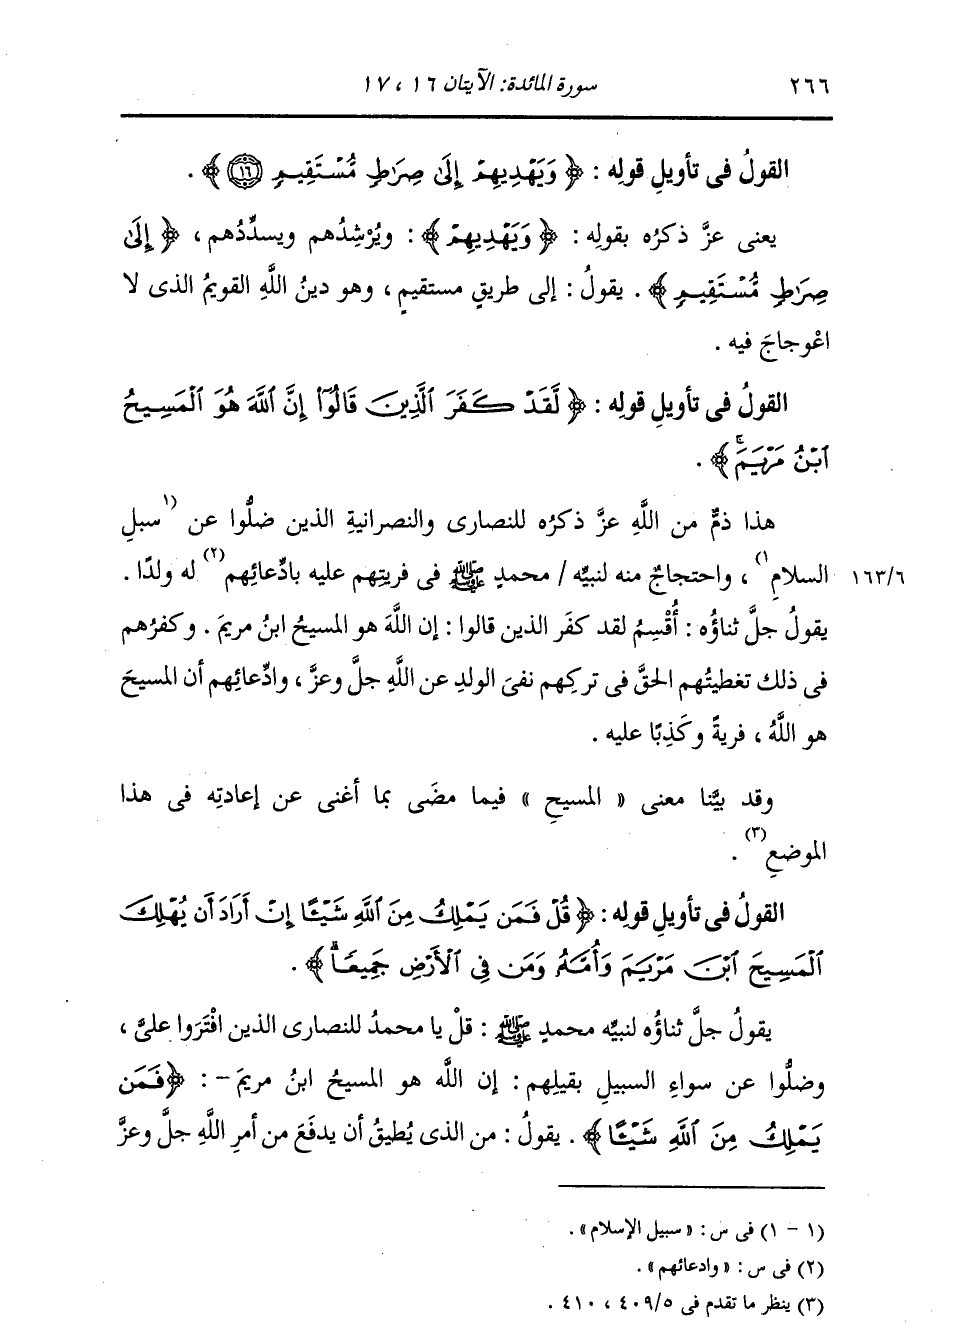 ٢٦٦ سورة المائدة: الآيتان ١٦ ، ١٧
القولُ فى تأويلِ قولِه : ﴿ وَيَهْدِيهِمْ إِلَىٰ صِرَٰطٍ مُّسْتَقِيمٍ ⑯ ﴾ .
يعنى عزَّ ذكرُه بقولِه : ﴿ وَيَهْدِيهِمْ ﴾ : ويُرْشِدُهم ويسدِّدُهم ، ﴿ إِلَىٰ
صِرَٰطٍ مُّسْتَقِيمٍ ﴾ . يقولُ : إلى طريقٍ مستقيمٍ ، وهو دينُ اللَّهِ القويمُ الذى لا
اعْوجاجَ فيه .
القولُ فى تأويلِ قولِه : ﴿ لَّقَدْ كَفَرَ ٱلَّذِينَ قَالُوٓا۟ إِنَّ ٱللَّهَ هُوَ ٱلْمَسِيحُ
ٱبْنُ مَرْيَمَ ۚ ﴾ .
هذا ذمٌّ من اللَّهِ عزَّ ذكرُه للنصارى والنصرانيةِ الذين ضلُّوا عن (١سبلِ
السلامِ١) ، واحتجاجٌ منه لنبيِّه / محمدٍ ﷺ فى فريتِهم عليه بادِّعائِهم(٢) له ولدًا . ١٦٣/٦
يقولُ جلَّ ثناؤُه : أُقْسِمُ لقد كفَر الذين قالوا : إن اللَّهَ هو المسيحُ ابنُ مريمَ . وكفرُهم
فى ذلك تغطيتُهم الحقَّ فى تركِهم نفىَ الولدِ عن اللَّهِ جلَّ وعزَّ ، وادِّعائِهم أن المسيحَ
هو اللَّهُ ، فريةً وكَذِبًا عليه .
وقد بيَّنا معنى « المسيحِ » فيما مضَى بما أغنى عن إعادتِه فى هذا
الموضعِ(٣) .
القولُ فى تأويلِ قولِه : ﴿ قُلْ فَمَن يَمْلِكُ مِنَ ٱللَّهِ شَيْـًٔا إِنْ أَرَادَ أَن يُهْلِكَ
ٱلْمَسِيحَ ٱبْنَ مَرْيَمَ وَأُمَّهُۥ وَمَن فِى ٱلْأَرْضِ جَمِيعًا ۗ ﴾ .
يقولُ جلَّ ثناؤُه لنبيِّه محمدٍ ﷺ : قلْ يا محمدُ للنصارى الذين افْتَرَوا علىَّ ،
وضلُّوا عن سواءِ السبيلِ بقيلِهم : إن اللَّه هو المسيحُ ابنُ مريمَ - : ﴿ فَمَن
يَمْلِكُ مِنَ ٱللَّهِ شَيْـًٔا ﴾ . يقولُ : من الذى يُطيقُ أن يدفَعَ من أمرِ اللَّهِ جلَّ وعزَّ
(١ - ١) فى س : « سبيل الإسلام » .
(٢) فى س : « وادعائهم » .
(٣) ينظر ما تقدم فى ٤٠٩/٥ ، ٤١٠ .